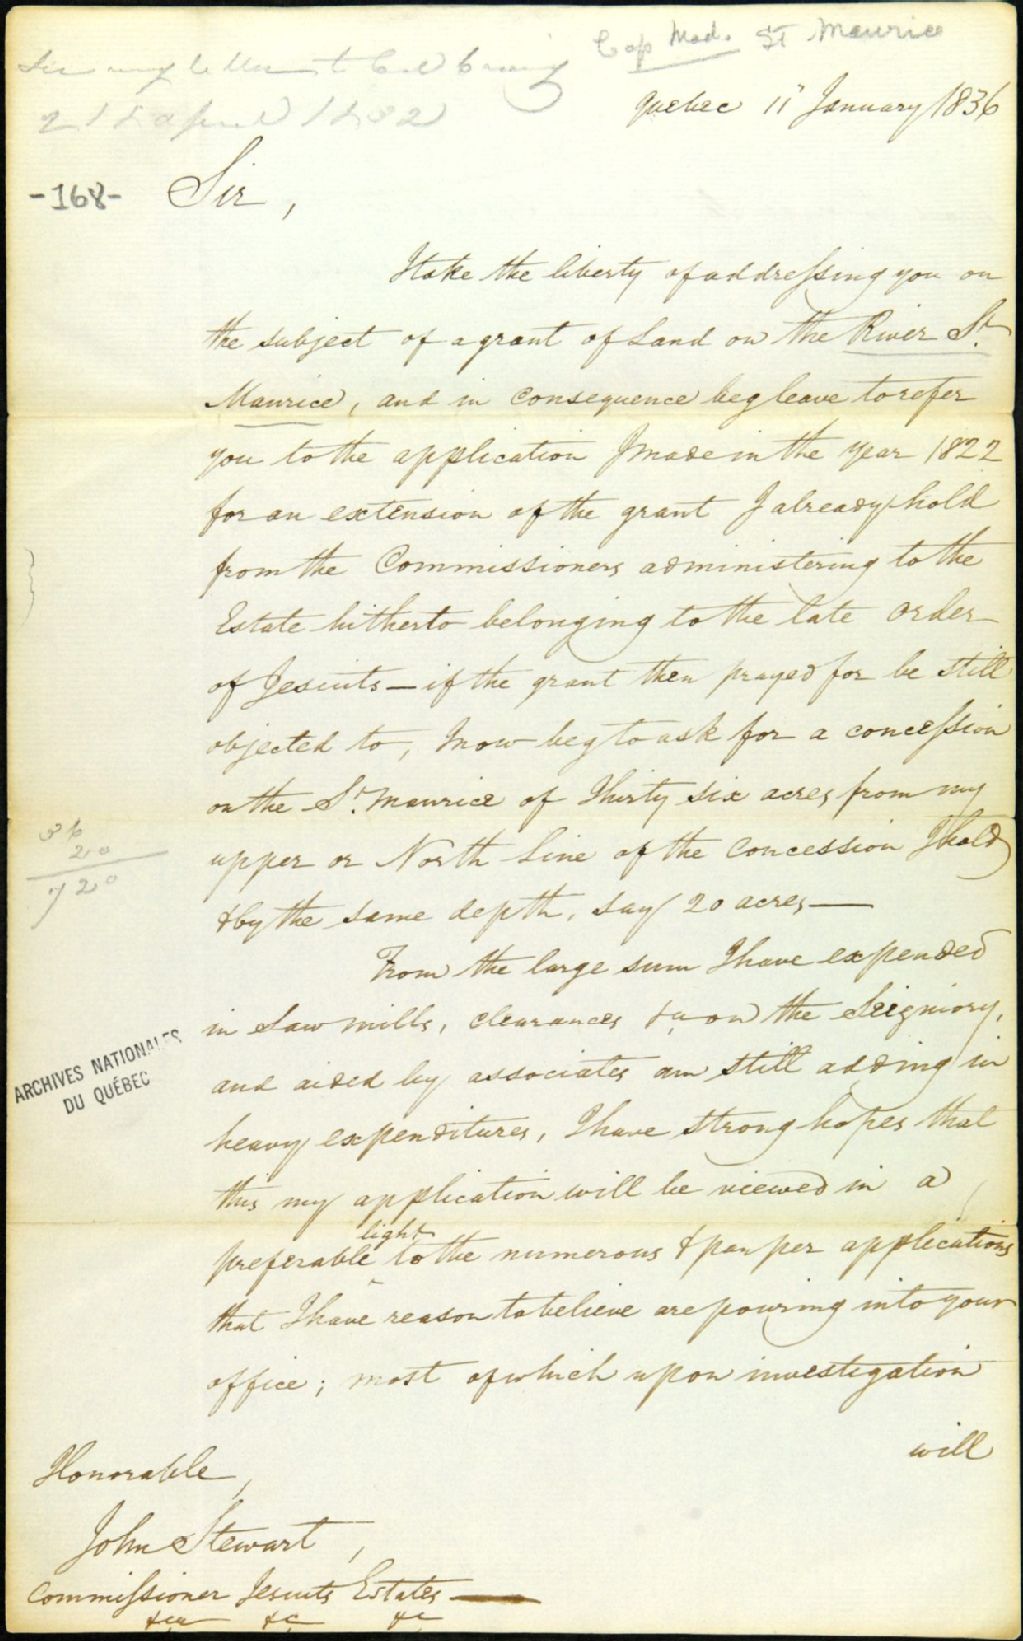 Cap Mad. St Maurice
See my letter to
Quebec 11" January 1836
-168-
Sir,
I take the liberty of addressing you on
the subject of a grant of Land on the River St.
Maurice, and in consequence beg leave to refer
you to the application I made in the year 1822
for an extension of the grant I already hold
from the Commissioners administering to the
Estate hitherto belonging to the late Order
of Jesuits — if the grant then prayed for be still
objected to, I now beg to ask for a concession
on the St. Maurice of Thirty six acres from my
upper or North line of the Concession I hold
& by the same depth, say 20 acres —
36
20
720
From the large sum I have expended
in Saw mills, clearances &a on the Seigniory,
and aided by associates am still adding in
heavy expenditures, I have strong hopes that
this my application will be viewed in a
preferable light to the numerous & pauper applications
that I have reason to believe are pouring into your
office; most of which upon investigation
will
ARCHIVES NATIONALES
DU QUÉBEC
Honorable,
John Stewart,
Commissioner Jesuits Estates —
&ca &c &c